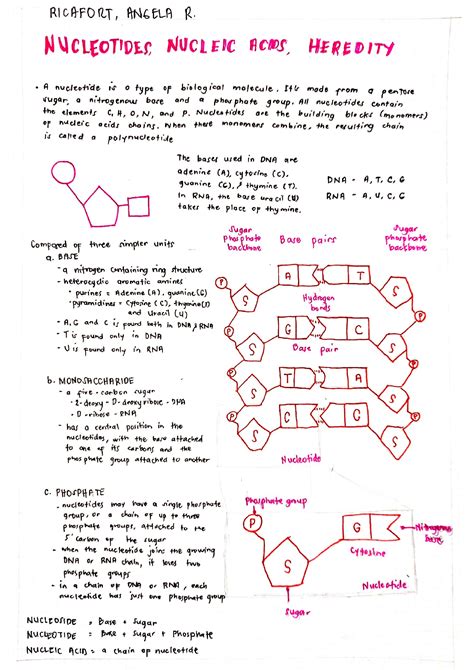 RICAFORT, ANGELA R.
NUCLEOTIDES, NUCLEIC ACIDS, HEREDITY
• A nucleotide is a type of biological molecule. It's made from a pentose
sugar, a nitrogenous base and a phosphate group. All nucleotides contain
the elements C, H, O, N, and P. Nucleotides are the building blocks (monomers)
of nucleic acids chains. When these monomers combine, the resulting chain
is called a polynucleotide
The bases used in DNA are
adenine (A), cytosine (C),
guanine (G), thymine (T).
In RNA, the base uracil (U)
takes the place of thymine.
DNA - A, T, C, G
RNA - A, U, C, G
Composed of three simpler units
a. BASE
- a nitrogen containing ring structure
- heterocyclic aromatic amines
• purines = Adenine (A), guanine (G)
• pyramidines = Cytosine (C), thymine (T)
and Uracil (U)
- A, G and C is found both in DNA & RNA
- T is found only in DNA
- U is found only in RNA
b. MONOSACCHARIDE
- a five-carbon sugar
- 2-deoxy-D-deoxyribose - DNA
- D-ribose - RNA
- has a central position in the
nucleotides, with the base attached
to one of its carbons and the
phosphate group attached to another
Sugar
phosphate
backbone
Base pairs
Sugar
phosphate
backbone
P
S
A
T
S
Hydrogen
bonds
P
P
S
G
C
S
Base pair
P
P
S
T
A
S
P
P
S
C
C
S
P
Nucleotide
c. PHOSPHATE
. nucleotides may have a single phosphate
group, or a chain of up to three
phosphate groups, attached to the
5' carbon of the sugar
- when the nucleotide joins the growing
DNA or RNA chain, it loses two
phosphate groups
- in a chain of DNA or RNA, each
nucleotide has just one phosphate group
Phosphate group
P
S
G
Cytosine
Nitrogenous
base
Nucleotide
Sugar
NUCLEOSIDE = Base + Sugar
NUCLEOTIDE = Base + Sugar + Phosphate
NUCLEIC ACID = a chain of nucleotide